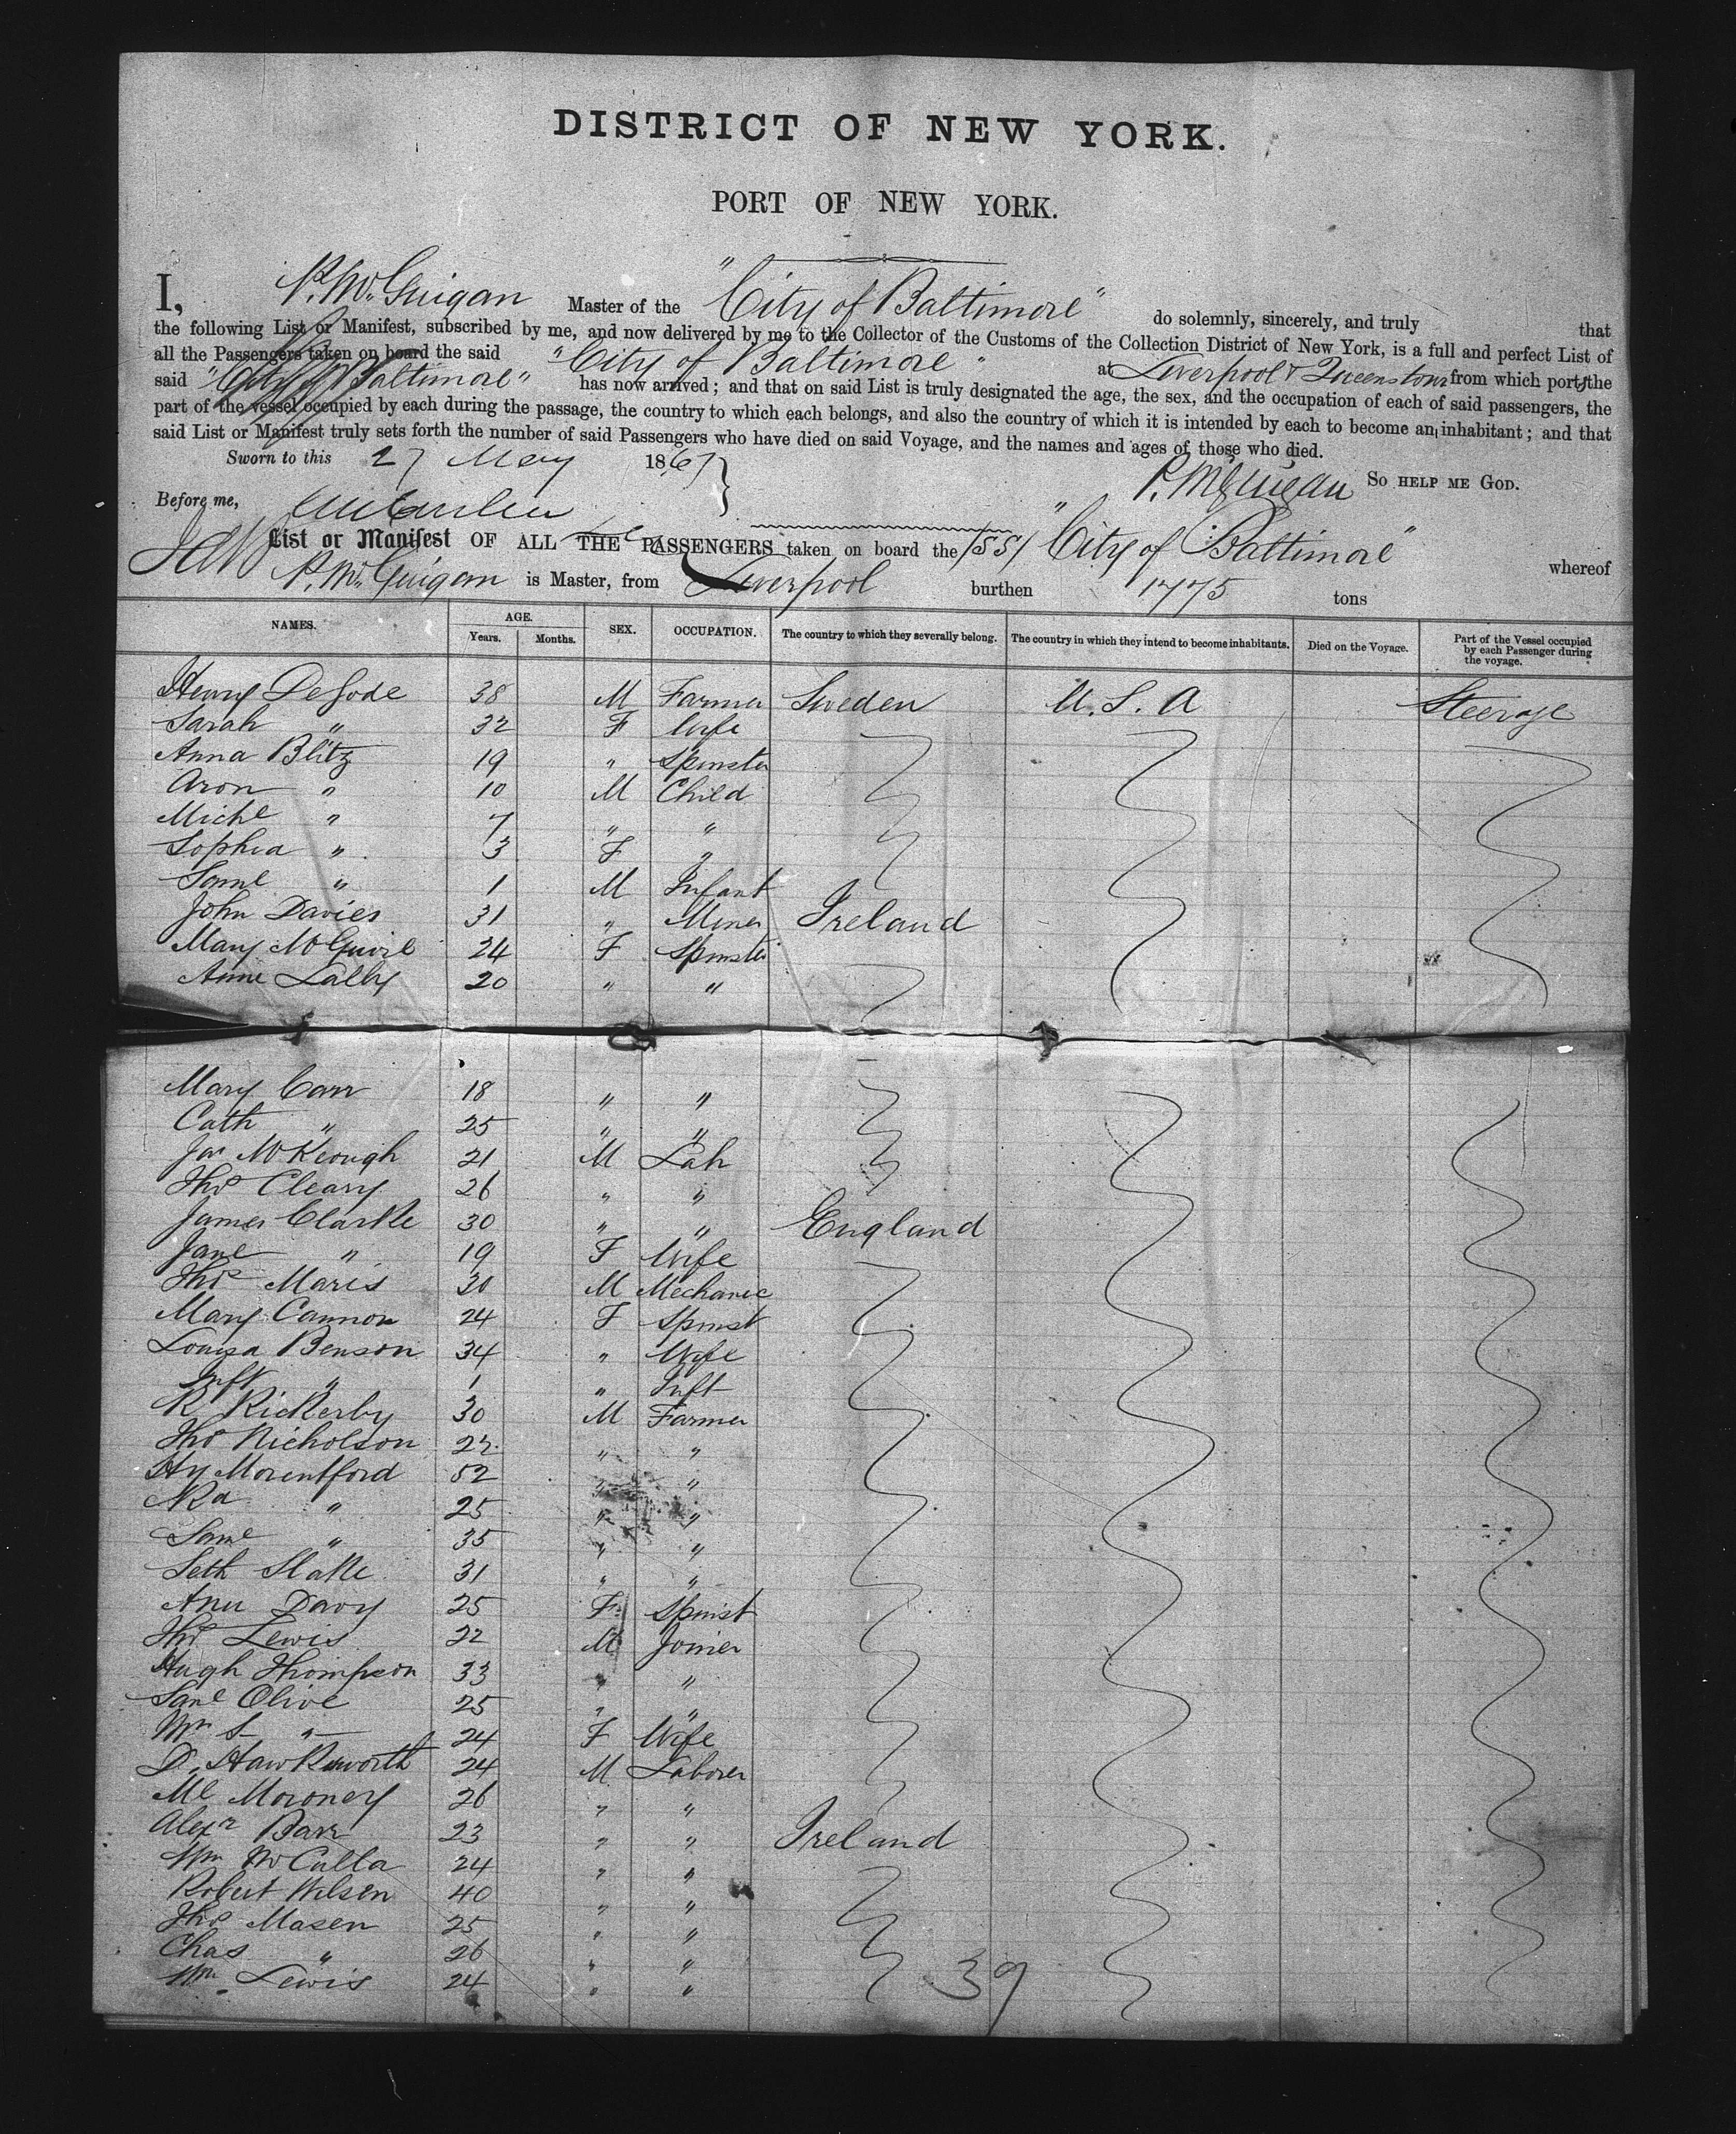 DISTRICT OF NEW YORK.
PORT OF NEW YORK.
I, P. McGuigan Master of the "City of Baltimore" do solemnly, sincerely, and truly that
the following List or Manifest, subscribed by me, and now delivered by me to the Collector of the Customs of the Collection District of New York, is a full and perfect List of
all the Passengers taken on board the said "City of Baltimore" at Liverpool & Queenstown from which ports the
said "City of Baltimore" has now arrived; and that on said List is truly designated the age, the sex, and the occupation of each of said passengers, the
part of the vessel occupied by each during the passage, the country to which each belongs, and also the country of which it is intended by each to become an inhabitant; and that
said List or Manifest truly sets forth the number of said Passengers who have died on said Voyage, and the names and ages of those who died.
Sworn to this 27 May 1867
P. McGuigan SO HELP ME GOD.
Before me,
List or Manifest OF ALL THE PASSENGERS taken on board the SS "City of Baltimore" whereof
P. McGuigan is Master, from Liverpool burthen 1775 tons
NAMES. AGE. Years. Months. SEX. OCCUPATION. The country to which they severally belong. The country in which they intend to become inhabitants. Died on the Voyage. Part of the Vessel occupied by each Passenger during the voyage.
Henry DeJode 38 M Farmer Sweden U.S.A Steerage
Sarah " 32 F Wife
Anna Blitz 19 " Spinster
Aron " 10 M Child
Michl " 7 " "
Sophia " 3 F "
Saml " 1 M Infant
John Davies 31 " Miner Ireland
Mary McGuire 24 F Spinster
Anne Lally 20 " "
Mary Carr 18 " "
Cath " 25 " "
Jas McKeough 21 M Lab
Thos Cleary 26 " "
James Clarke 30 " " England
Jane " 19 F Wife
Thos Maris 30 M Mechanic
Mary Cannon 24 F Spinst
Louisa Benson 34 " Wife
Inft " 1 " Inft
R Rickerby 30 M Farmer
Thos Nicholson 22 " "
Hy Morentford 52 " "
" 25 " "
Saml " 35 " "
Seth Slake 31 " "
Ann Davy 25 F Spinist
Thos Lewis 22 M Joiner
Hugh Thompson 33 " "
Saml Olive 25 " "
Mrs S " 24 F Wife
D. Hawksworth 24 M Laborer
Ml Moroney 26 " "
Alexr Barr 23 " " Ireland
Wm McCulla 24 " "
Robert Wilsen 40 " "
Thos Masen 25 " "
Chas " 26 " "
Wm Lewis 24 " "
39